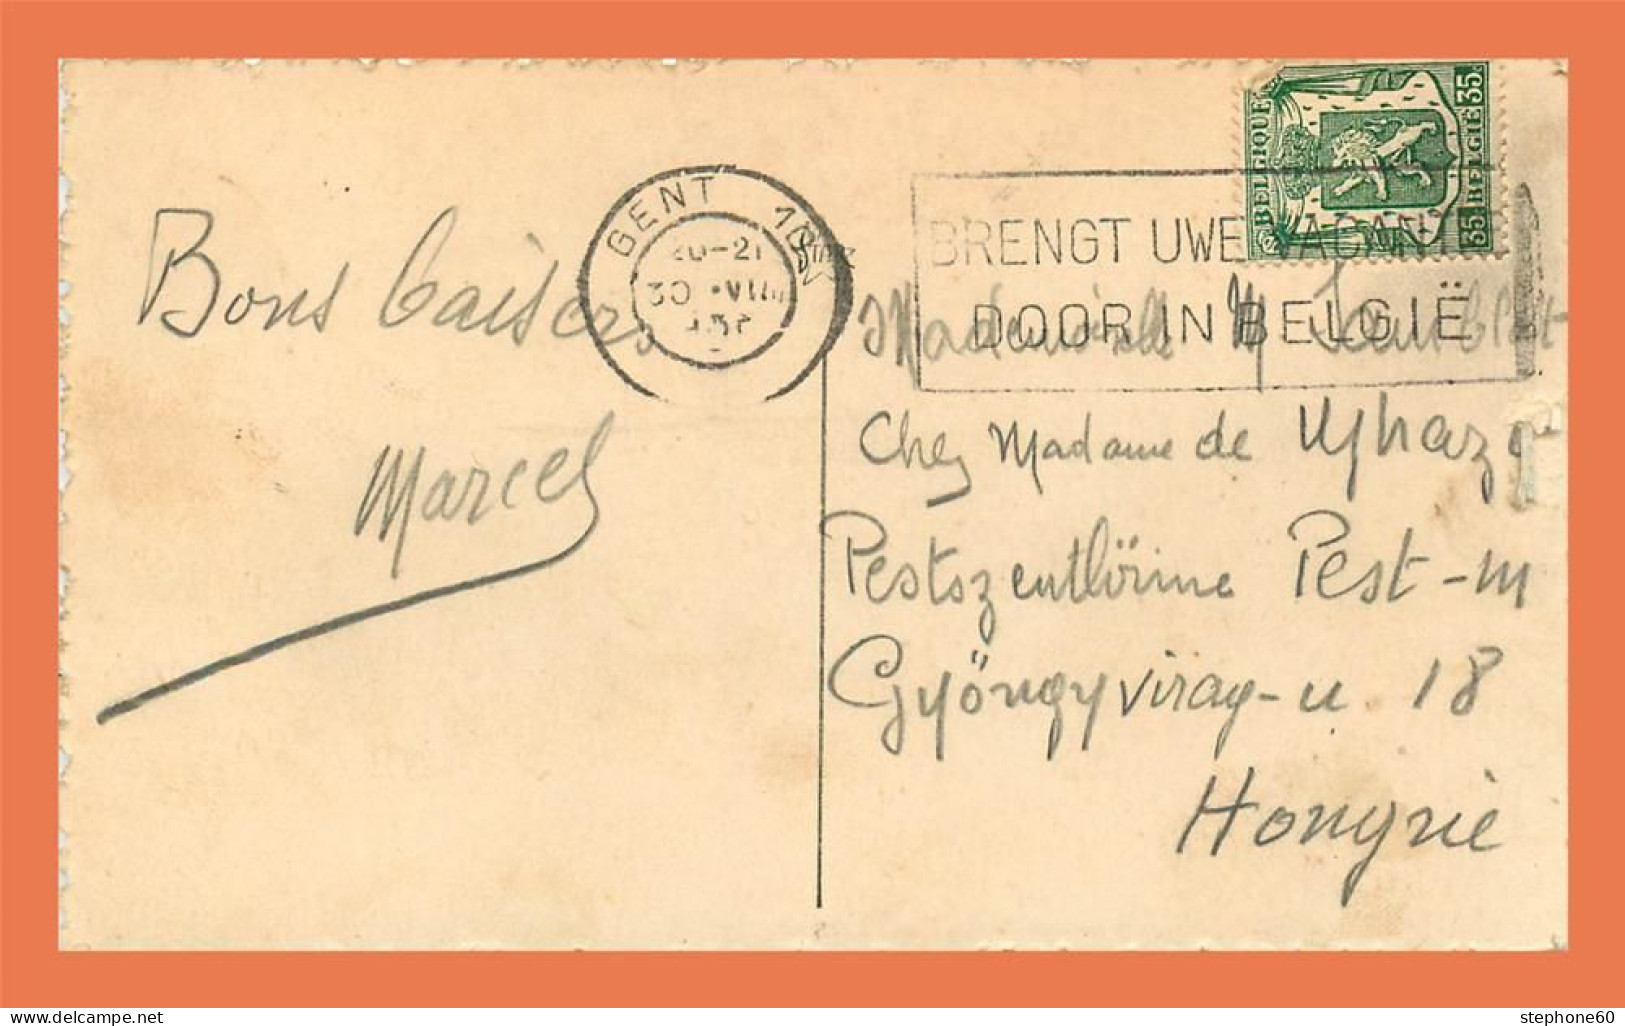 BELGIQUE
35 BELGIE 35
GENT 1
20-21
30 VIII
BRENGT UWE VACANTIE
DOOR IN BELGIË
Bons baisers
Marcel
Mademoiselle M
Chez Madame de Ujhazy
Pestszentlörinc Pest-m
Gyöngyvirag-u 18
Hongrie
www.delcampe.net
stephone60